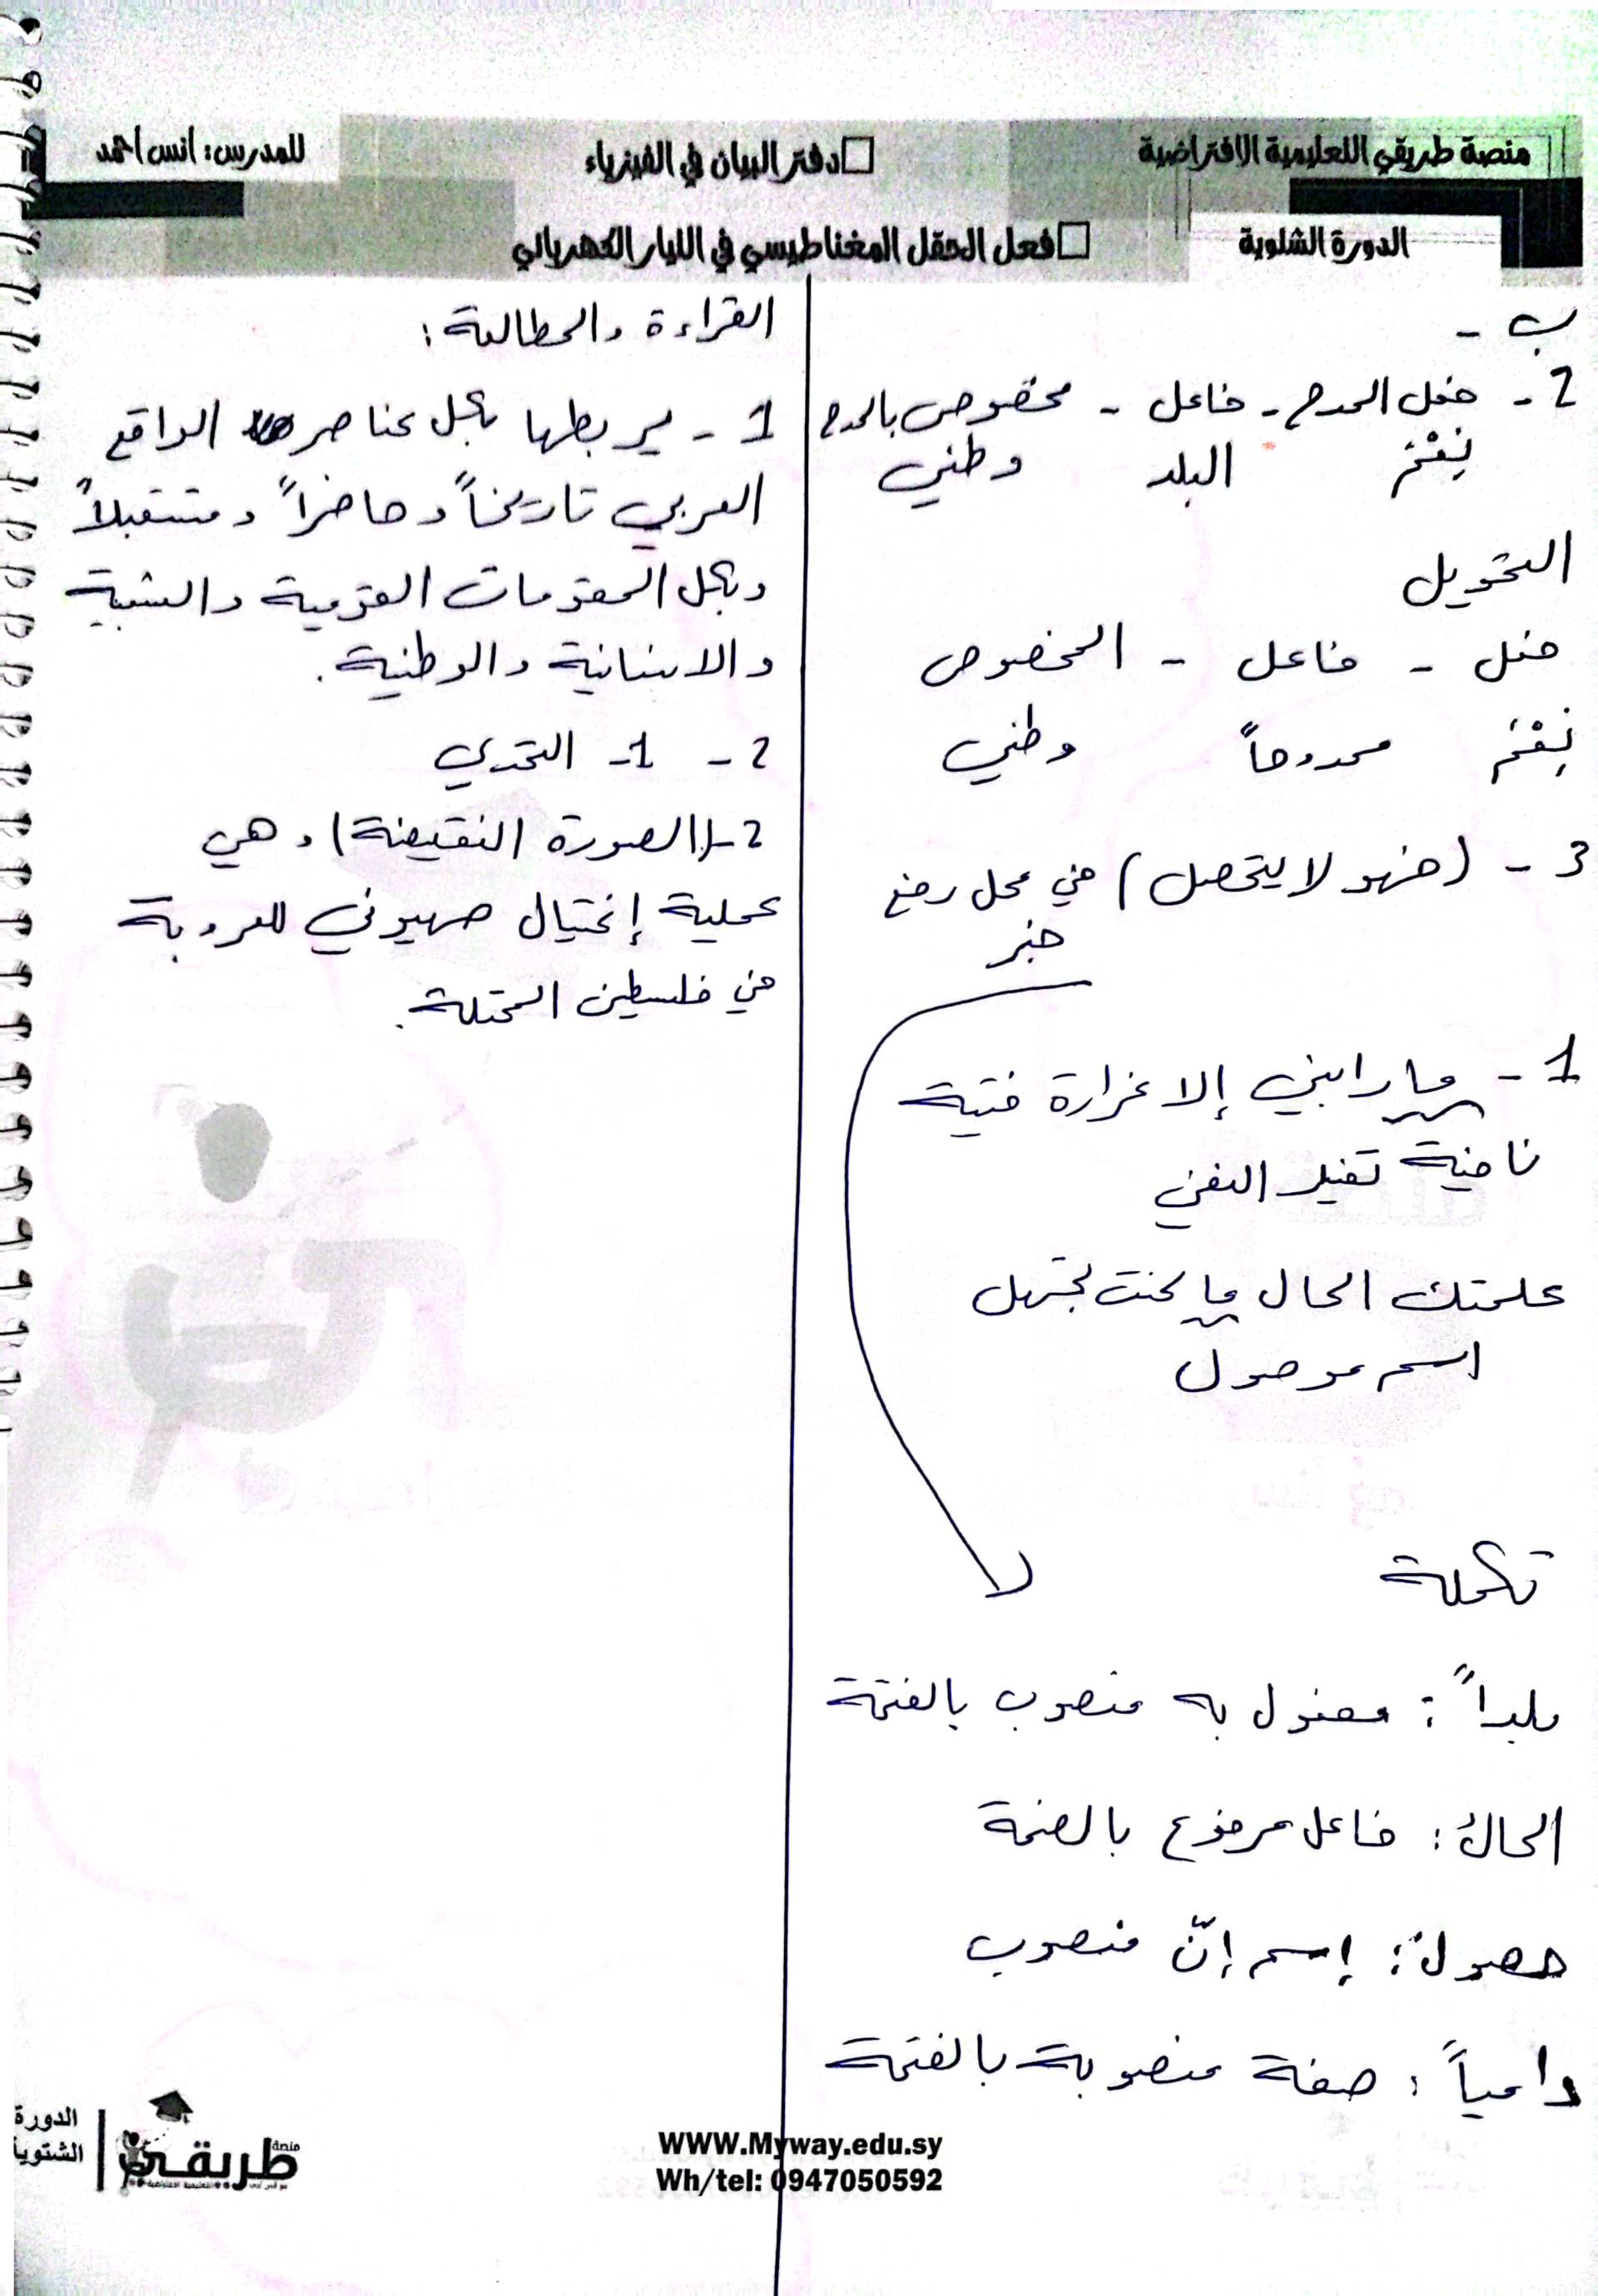 منصة طريقي التعليمية الافتراضية
دفتر البيان في الفيزياء
للمدرس: انس احمد
الدورة الشتوية
فعل الحقل المغناطيسي في التيار الكهربائي
ب -
2 - فعل المدح - فاعل - مخصوص بالمدح
نِعْمَ البلد وطني
التحويل
فعل - فاعل - المخصوص
نِعْمَ ممدوحاً وطني
3 - (فهو لا يتحصل) في محل رفع
خبر
1 - ما رابني إلا غرارة فتية
نافية تفيد النفي
علمتك الحال ما كنت تجهل
اسم موصول
تكملة
بلداً: مفعول به منصوب بالفتحة
الحالُ: فاعل مرفوع بالضمة
حصول: إسم إنّ منصوب
دامياً: صفة منصوبة بالفتحة
القراءة والمطالعة:
1 - يربطها بكل عناصر الواقع
العربي تاريخاً وحاضراً ومستقبلاً
وبكل المقومات القومية والشعبية
والانسانية والوطنية.
2 - 1- التحدي
2-(الصورة النقيضة) وهي
عملية إغتيال صهيوني للعروبة
في فلسطين المحتلة.
WWW.Myway.edu.sy
Wh/tel: 0947050592
منصة
طريقي
الدورة
الشتوية